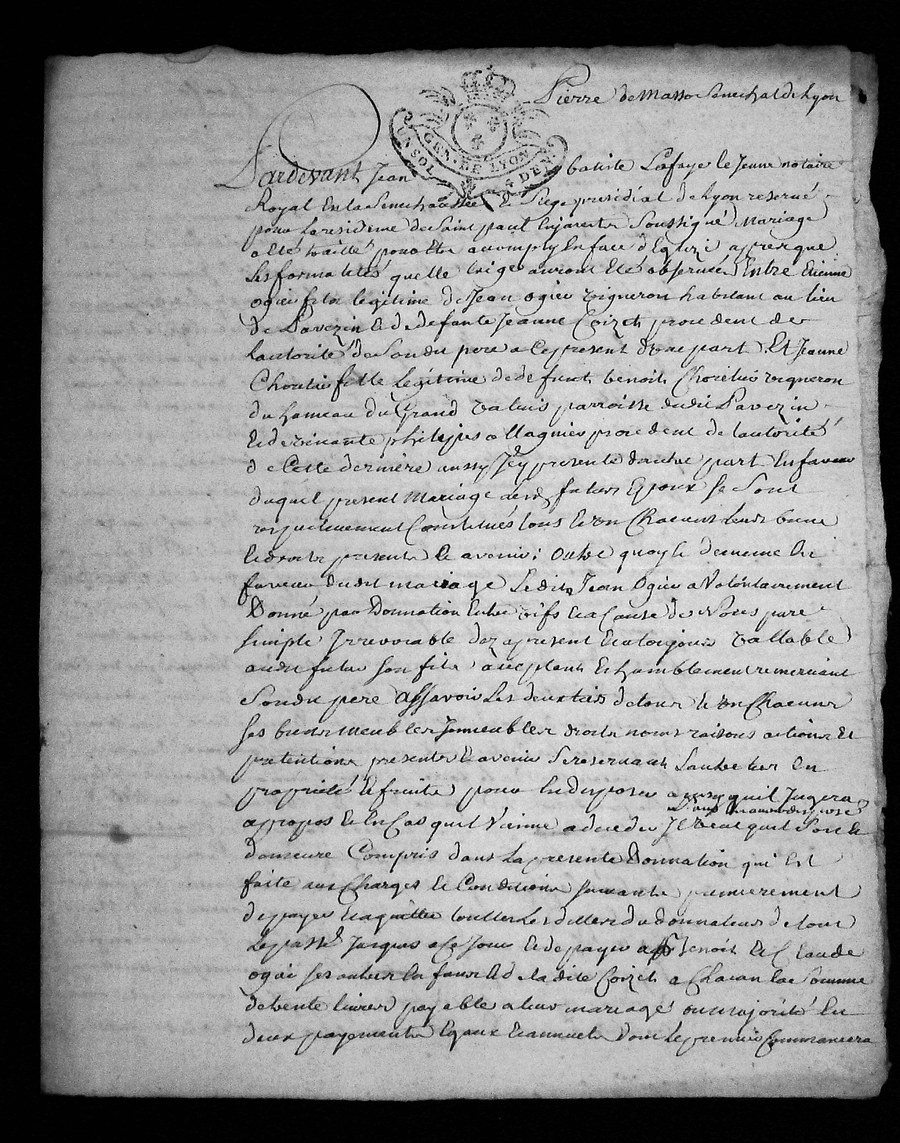 Pierre de Masso Senechal de Lyon
GEN. DE LYON
UN SOL 4 DEN.
Pardevant Jean batiste Lafaye le Jeune notaire
Royal En la Senechaussée & Siege presidial de Lyon reservé
pour la residence de Saint paul Enjarets Soussigné Mariage
a eté traitté pour Etre accomply En face d'Eglize apres que
Les formalités quelle Exige auront Eté observées Entre Etienne
ogier fils legitime de Jean ogier vigneron habitant au lieu
de Pavezin & de defunte Jeanne Coizet procedent de
Lautorité de Son dit pere a Ce present d'une part, Et Jeanne
fille Legitime de defunt benoit vigneron
du hameau du Grand parroisse dudit Pavezin
Et de vivante Magnier procedent de Lautorité
de Cette derniere aussy Jcy presente dautre part En faveur
duquel present Mariage lesd. futurs Epoux Se Sont
respectivement Constitués tous Et un Chacuns leurs biens
Et droits presents & avenir; Outre quoy & de meme En
faveur dudit mariage Ledit Jean Ogier a Volontairement
Donné par Donnation Entre vifs & a Cause de Noces pure
Simple Irrevocable dez apresent Et a toujours Vallable
audit futur Son fils acceptant Et humblement remerciant
Son dit pere assavoir Les deux tiers de tous & un Chacuns
Ses biens Meubles Jmmeubles droits noms raisons actions Et
pretentions presents & avenir Se reservant Lautre tiers En
proprieté & fruits pour En disposer ainsy quil Jugera
Sans En avoir disposé
apropos & En Cas quil Vienne a deceder Jl Veut quil Soit &
demeure Compris dans La presente Donnation qui Est
faite aux Charges & Conditions Suivantes premierement
de payer Et aquitter touttes Les dettes du donnateur de tout
Le passé Jusques a Ce Jour & de payer a benoit & Claude
ogier Ses autres Enfants & de ladite Coizet a Chacun La Somme
de trente livres payable a leur mariage ou majorité En
deux payements Egaux Et annuels dont Le premier Commancera